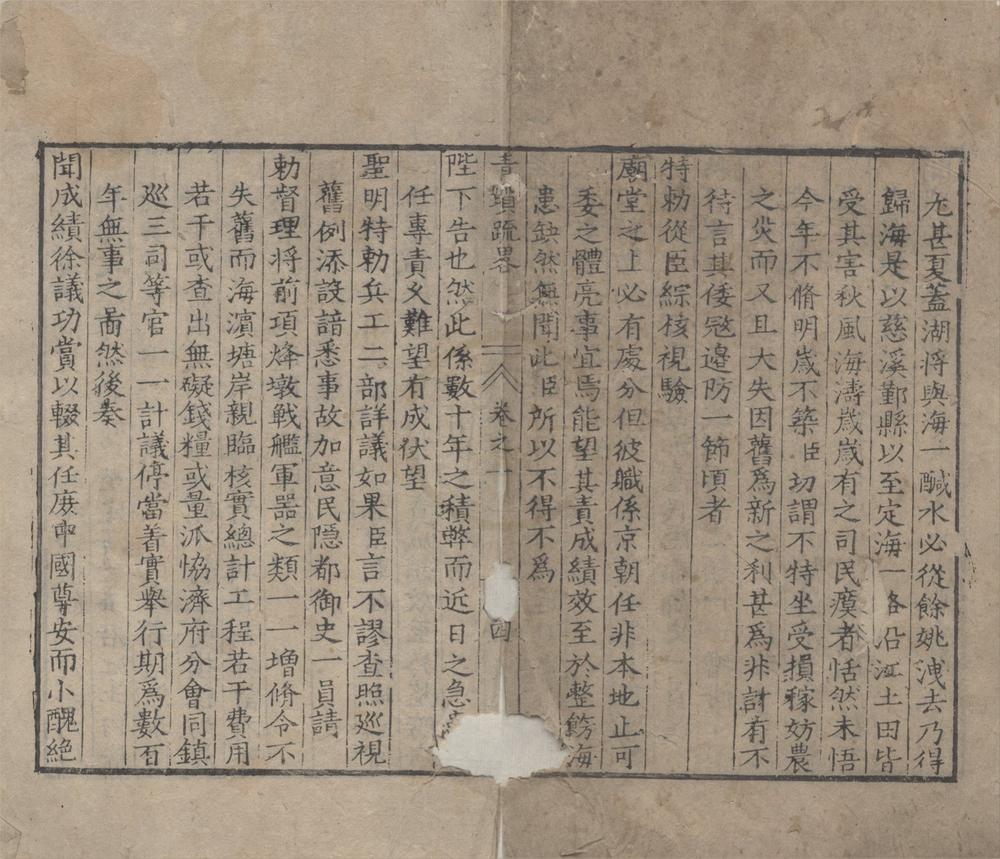 尤甚夏蓋湖將與海一醎水必從餘姚洩去乃得
歸海是以慈溪鄞縣以至定海一路沿江土田皆
受其害秋風海濤歲歲有之司民瘼者恬然未悟
今年不脩明歲不築臣切謂不特坐受損稼妨農
之災而又且大失因舊爲新之利甚爲非計有不
待言其倭寇邊防一節頃者
特勅從臣綜核視驗
廟堂之上必有處分但彼職係京朝任非本地止可
委之體亮事宜焉能望其責成績效至於整飭海
患缺然無聞此臣所以不得不爲
青瑣疏畧
卷之一
四
陛下告也然此係數十年之積弊而近日之急
任專責乂難望有成伏望
聖明特勅兵工二部詳議如果臣言不謬查照巡視
舊例添設諳悉事故加意民隱都御史一員請
勅督理將前項烽墩戰艦軍器之類一一增脩令不
失舊而海濵塘岸親臨核實總計工程若干費用
若干或查出無礙錢糧或量派恊濟府分會同鎮
巡三司等官一一計議停當着實舉行期爲數百
年無事之啚然後奏
聞成績徐議功賞以輟其任庻中國尊安而小醜絶